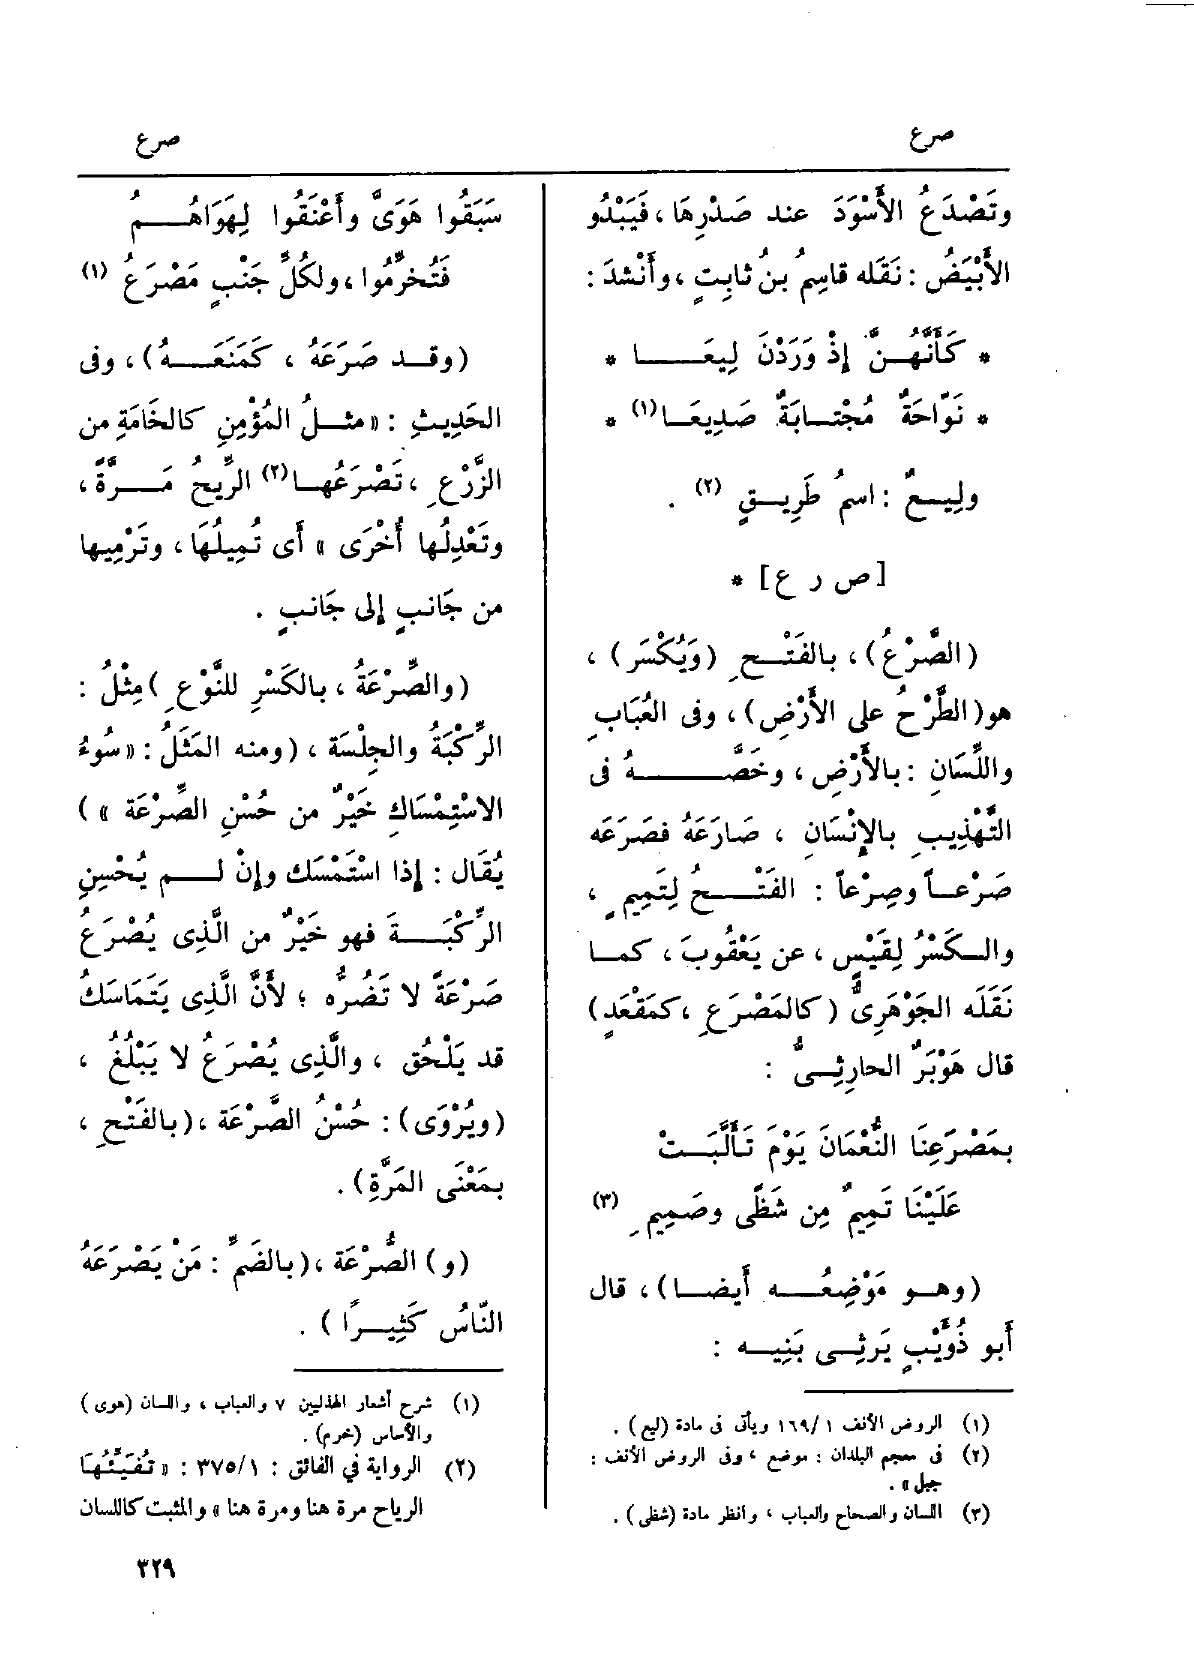 صرع
صرع
وتَصْدَعُ الأَسْوَدَ عند صَدْرِهَا، فَيَبْدُو
الأَبْيَضُ : نَقَله قاسِمُ بنُ ثابِتٍ ، وأَنْشدَ :
* كَأَنَّهُــنَّ إِذْ وَرَدْنَ لِيعَــــا *
* نَوّاحَةٌ مُجْتــابَةٌ صَدِيعَــا(١) *
ولِيــعٌ : اسمُ طَرِيــقٍ (٢) .
[ص ر ع] *
(الصَّرْعُ) ، بالفَتْــحِ (وَيُكْسَر) ،
هو(الطَّرْحُ على الأَرْضِ) ، وفى العُبَابِ
واللِّسَانِ : بالأَرْضِ ، وخَصَّــــــهُ فى
التَّهْذِيبِ بالإِنْسَانِ ، صَارَعَهُ فصَرَعَه
صَرْعــاً وصِرْعاً : الفَتْــحُ لِتَمِيمٍ ،
والــكَسْرُ لِقَيْسٍ ، عن يَعْقُوبَ ، كمــا
نَقَلَه الجَوْهَرِىُّ (كالمَصْرَعِ ، كمَقْعَدٍ)
قال هَوْبَرٌ الحارِثِــىُّ :
بمَصْرَعِنَا النُّعْمَانَ يَوْمَ تَأَلَّبَــتْ
عَلَيْنَا تَمِيمٌ مِن شَظًى وصَمِيمِ (٣)
(وهــو مَوْضِعُــه أَيضــا) ، قال
أَبو ذُؤَيْبٍ يَرثِــى بَنِيــه :
(١) الروض الأنف ١/ ١٦٩ ويأتى فى مادة (ليع) .
(٢) فى معجم البلدان : موضع ، وفى الروض الأنف :
جبل » .
(٣) اللسان والصحاح والعباب ، وانظر مادة (شظى) .
سَبَقُوا هَوَىَّ وأَعْنَقُوا لِهَوَاهُــمُ
فَتُخُرِّمُوا ، ولكُلِّ جَنْبٍ مَصْرَعُ (١)
(وقــد صَرَعَهُ ، كمَنَعَــهُ) ، وفى
الحَدِيثِ : « مثــلُ المُؤْمِنِ كالخَامَةِ من
الزَّرْعِ ، تَصْرَعُهــا(٢) الرِّيحُ مَــرَّةً ،
وتَعْدِلُها أُخْرَى » أَى تُمِيلُهَا ، وتَرْمِيها
من جَانبٍ إِلى جَانبٍ .
(والصِّرْعَةُ ، بالكَسْرِ للنَّوْعِ )مِثْلُ :
الرِّكْبَةُ والجِلْسَة ، (ومنه المَثَلُ : « سُوءُ
الاسْتِمْسَاكِ خَيْرٌ من حُسْنِ الصِّرْعَة » )
يُقَال : إِذا اسْتَمْسَك وإِنْ لــم يُحْسِنِ
الرِّكْبَــةَ فهو خَيْرٌ من الَّذِى يُصْرَعُ
صَرْعَةً لا تَضُرُّه ؛ لأَنَّ الَّذِى يَتَمَاسَكُ
قد يَلْحَق ، والَّذِى يُصْرَعُ لا يَبْلُغُ ،
(ويُرْوَى) : حُسْنُ الصَّرْعَة ، (بالفَتْحِ ،
بمَعْنَى المَرَّةِ) .
(و) الصُّرْعَة ، (بالضَمِّ : مَنْ يَصْرَعَهُ
النَّاسُ كَثِيــرًا ) .
(١) شرح أشعار الهذليين ٧ والعباب ، واللسان (هوى)
والأساس (خرم) .
(٢) الرواية في الفائق : ١/ ٣٧٥ : « تُفَيِّئُهَا
الرياح مرة هنا ومرة هنا » والمثبت كاللسان
٣٢٩